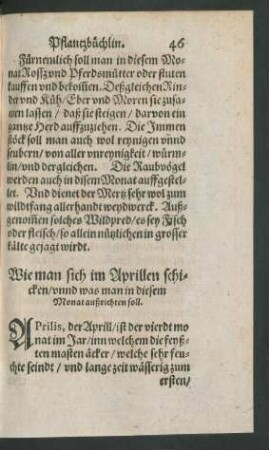 Pflantzbüchlin. 46
Fürnemlich soll man in diesem Mo-
nat Rossz vnd Pferdsmütter oder stuten
kauffen vnd bekoillen. Deßgleichen Rin-
der vnd Küh/Eber vnd Moren sie zusa-
men lassen / daß sie steigen / darvon ein
gantze Herd auffzuziehen. Die Immen
stöck soll man auch wol reynigen vnnd
seubern/von aller vnreynigkeit / würm-
lin/vnd dergleichen. Die Raubvögel
werden auch in disem Monat auffgestel-
let. Vnd dienet der Mertz sehr wol zum
wildtfang allerhandt weydwerck. Auß-
genom̃en solches Wildpred/es sey Fisch
oder fleisch/so allein nützlichen in grosser
kälte gejagt wirdt.
Wie man sich im Aprillen schi-
cken/vnnd was man in diesem
Monat außrichten soll.
APrilis, der Aprill/ist der vierdt mo
nat im Jar/inn welchem die feyß-
ten masten äcker/welche sehr feu-
chte seindt / vnd lange zeit wässerig zum
ersten/